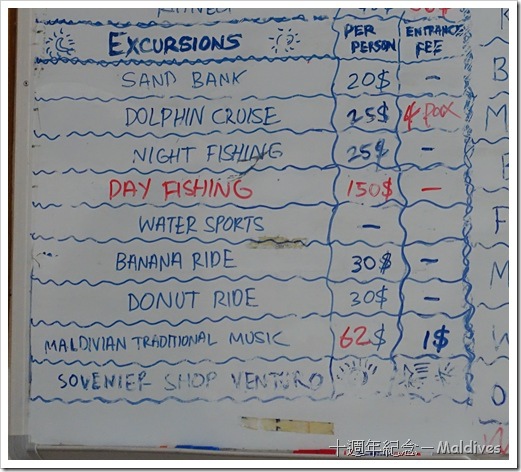 EXCURSIONS PER PERSON ENTRANCE FEE
SAND BANK 20$ -
DOLPHIN CRUISE 25$ 4 pax
NIGHT FISHING 25$ -
DAY FISHING 150$ -
WATER SPORTS -
BANANA RIDE 30$ -
DONUT RIDE 30$ -
MALDIVIAN TRADITIONAL MUSIC 62$ 1$
SOVENIER SHOP VENTURO
十週年紀念－Maldives